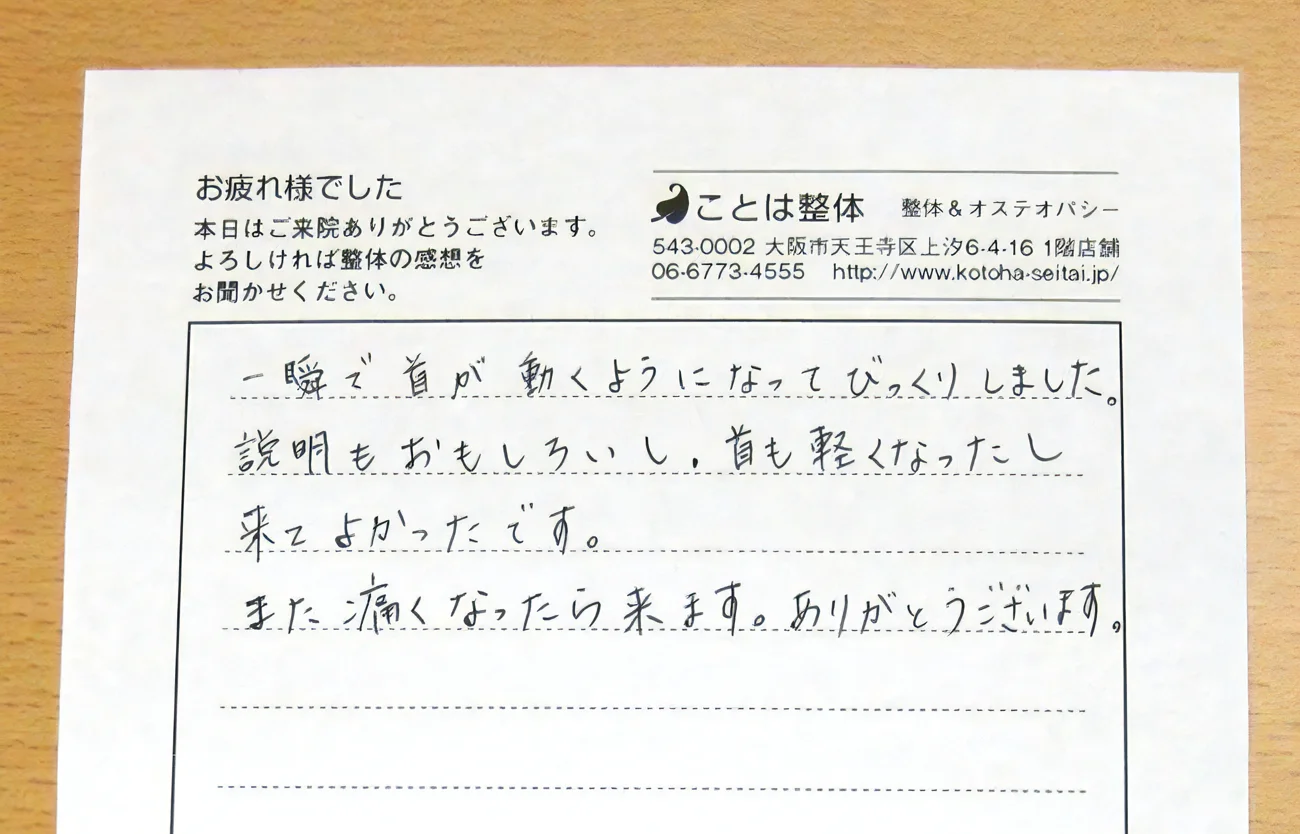 お疲れ様でした
本日はご来院ありがとうございます。
よろしければ整体の感想を
お聞かせください。
ことは整体 整体&オステオパシー
543-0002 大阪市天王寺区上汐6-4-16 1階店舗
06-6773-4555 http://www.kotoha-seitai.jp/
一瞬で首が動くようになってびっくりしました。
説明もおもしろいし、首も軽くなったし
来てよかったです。
また痛くなったら来ます。ありがとうございます。